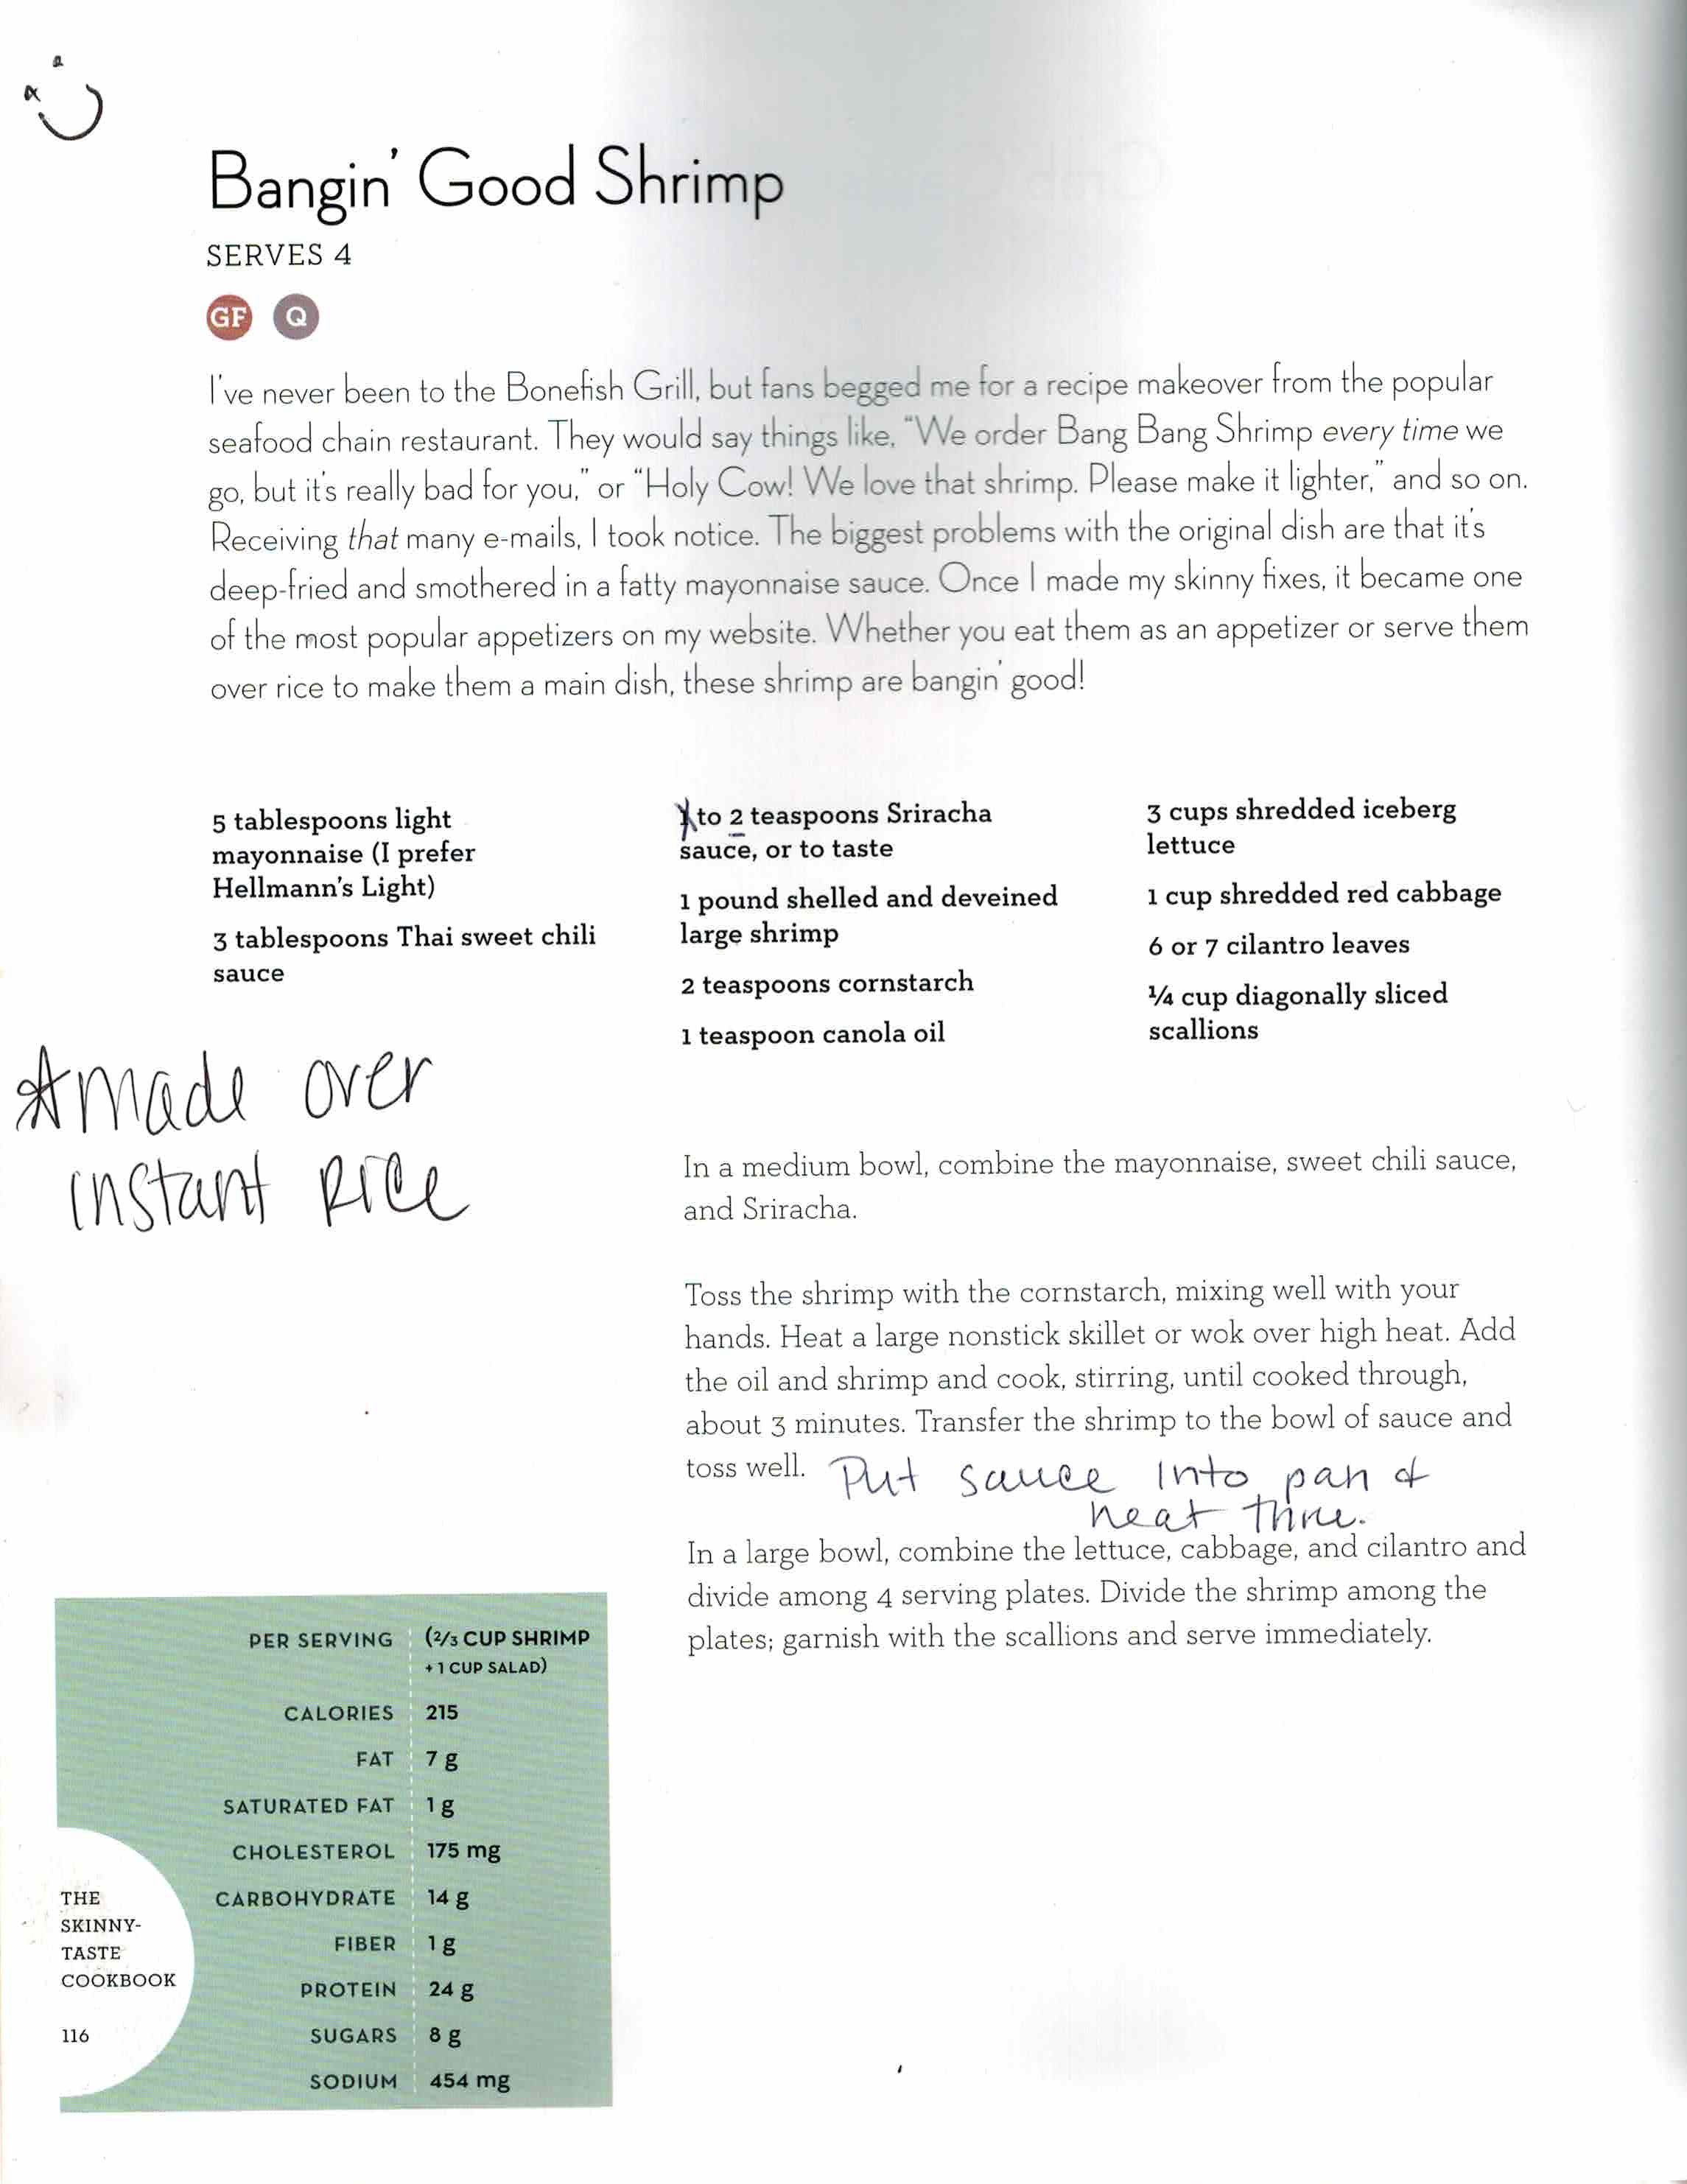 Bangin' Good Shrimp
SERVES 4
GF Q
I've never been to the Bonefish Grill, but fans begged me for a recipe makeover from the popular
seafood chain restaurant. They would say things like, "We order Bang Bang Shrimp every time we
go, but it's really bad for you," or "Holy Cow! We love that shrimp. Please make it lighter," and so on.
Receiving that many e-mails, I took notice. The biggest problems with the original dish are that it's
deep-fried and smothered in a fatty mayonnaise sauce. Once I made my skinny fixes, it became one
of the most popular appetizers on my website. Whether you eat them as an appetizer or serve them
over rice to make them a main dish, these shrimp are bangin' good!
5 tablespoons light
mayonnaise (I prefer
Hellmann's Light)
3 tablespoons Thai sweet chili
sauce
1 to 2 teaspoons Sriracha
sauce, or to taste
1 pound shelled and deveined
large shrimp
2 teaspoons cornstarch
1 teaspoon canola oil
3 cups shredded iceberg
lettuce
1 cup shredded red cabbage
6 or 7 cilantro leaves
¼ cup diagonally sliced
scallions
made over
instant Rice
In a medium bowl, combine the mayonnaise, sweet chili sauce,
and Sriracha.
Toss the shrimp with the cornstarch, mixing well with your
hands. Heat a large nonstick skillet or wok over high heat. Add
the oil and shrimp and cook, stirring, until cooked through,
about 3 minutes. Transfer the shrimp to the bowl of sauce and
toss well. Put sauce into pan &
heat thru.
In a large bowl, combine the lettuce, cabbage, and cilantro and
divide among 4 serving plates. Divide the shrimp among the
plates; garnish with the scallions and serve immediately.
PER SERVING (2/3 CUP SHRIMP
+ 1 CUP SALAD)
CALORIES 215
FAT 7 g
SATURATED FAT 1 g
CHOLESTEROL 175 mg
CARBOHYDRATE 14 g
FIBER 1 g
PROTEIN 24 g
SUGARS 8 g
SODIUM 454 mg
THE
SKINNY-
TASTE
COOKBOOK
116